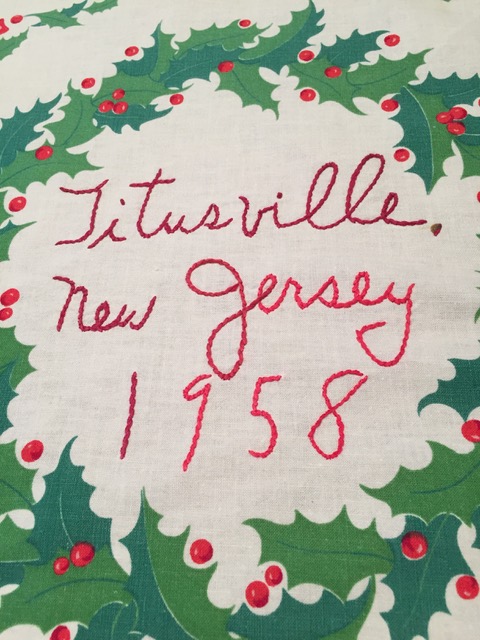 Titusville.
New Jersey
1958